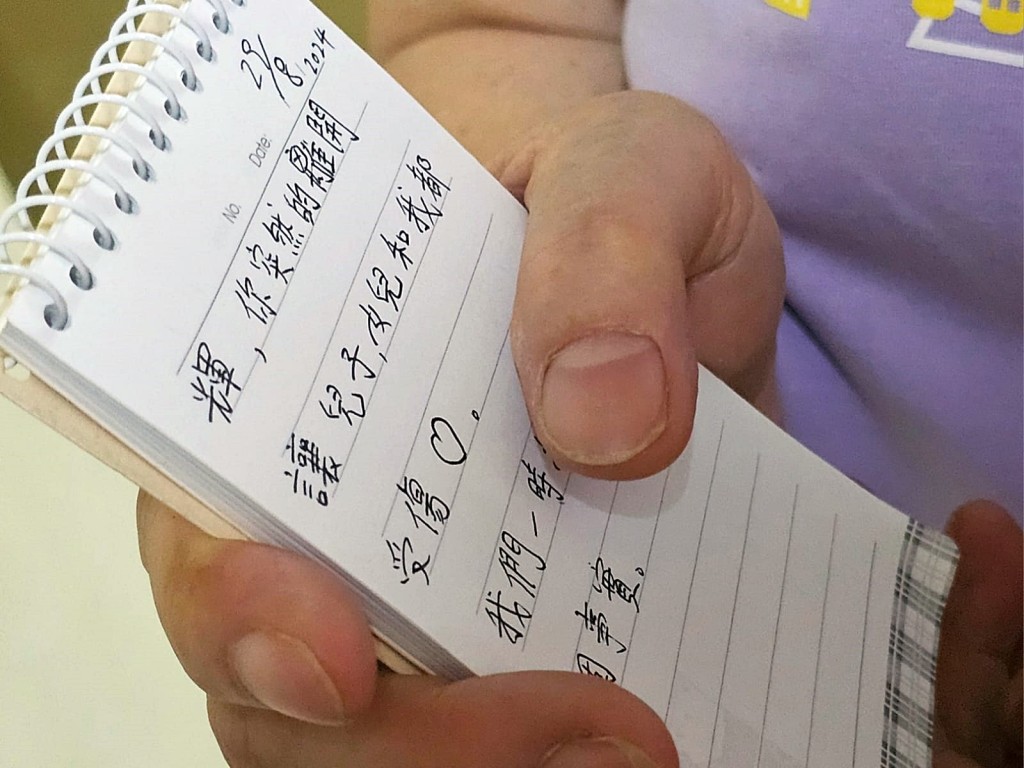 29/8 2024
No. Date:
輝，你突然的離開
讓兒子,女兒和我都
受傷♡。
我們一時
事實。